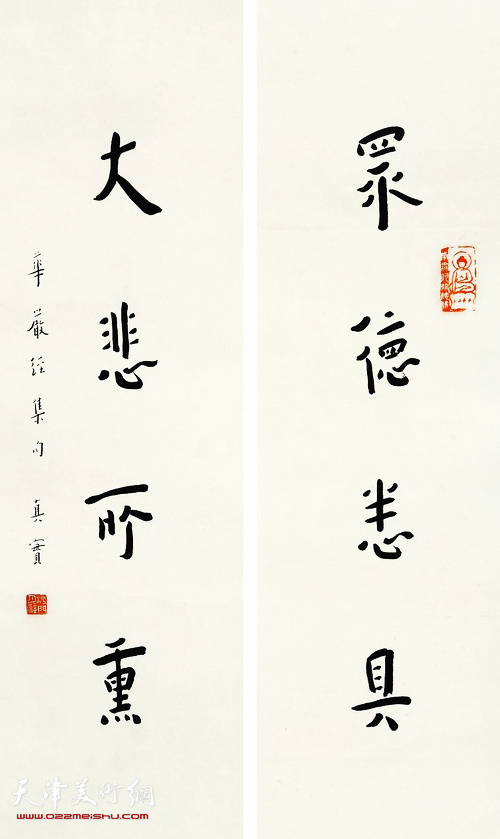 眾德悉具
大悲所熏
華嚴經集句 真實
天津美術網
www.ozzmeishu.com